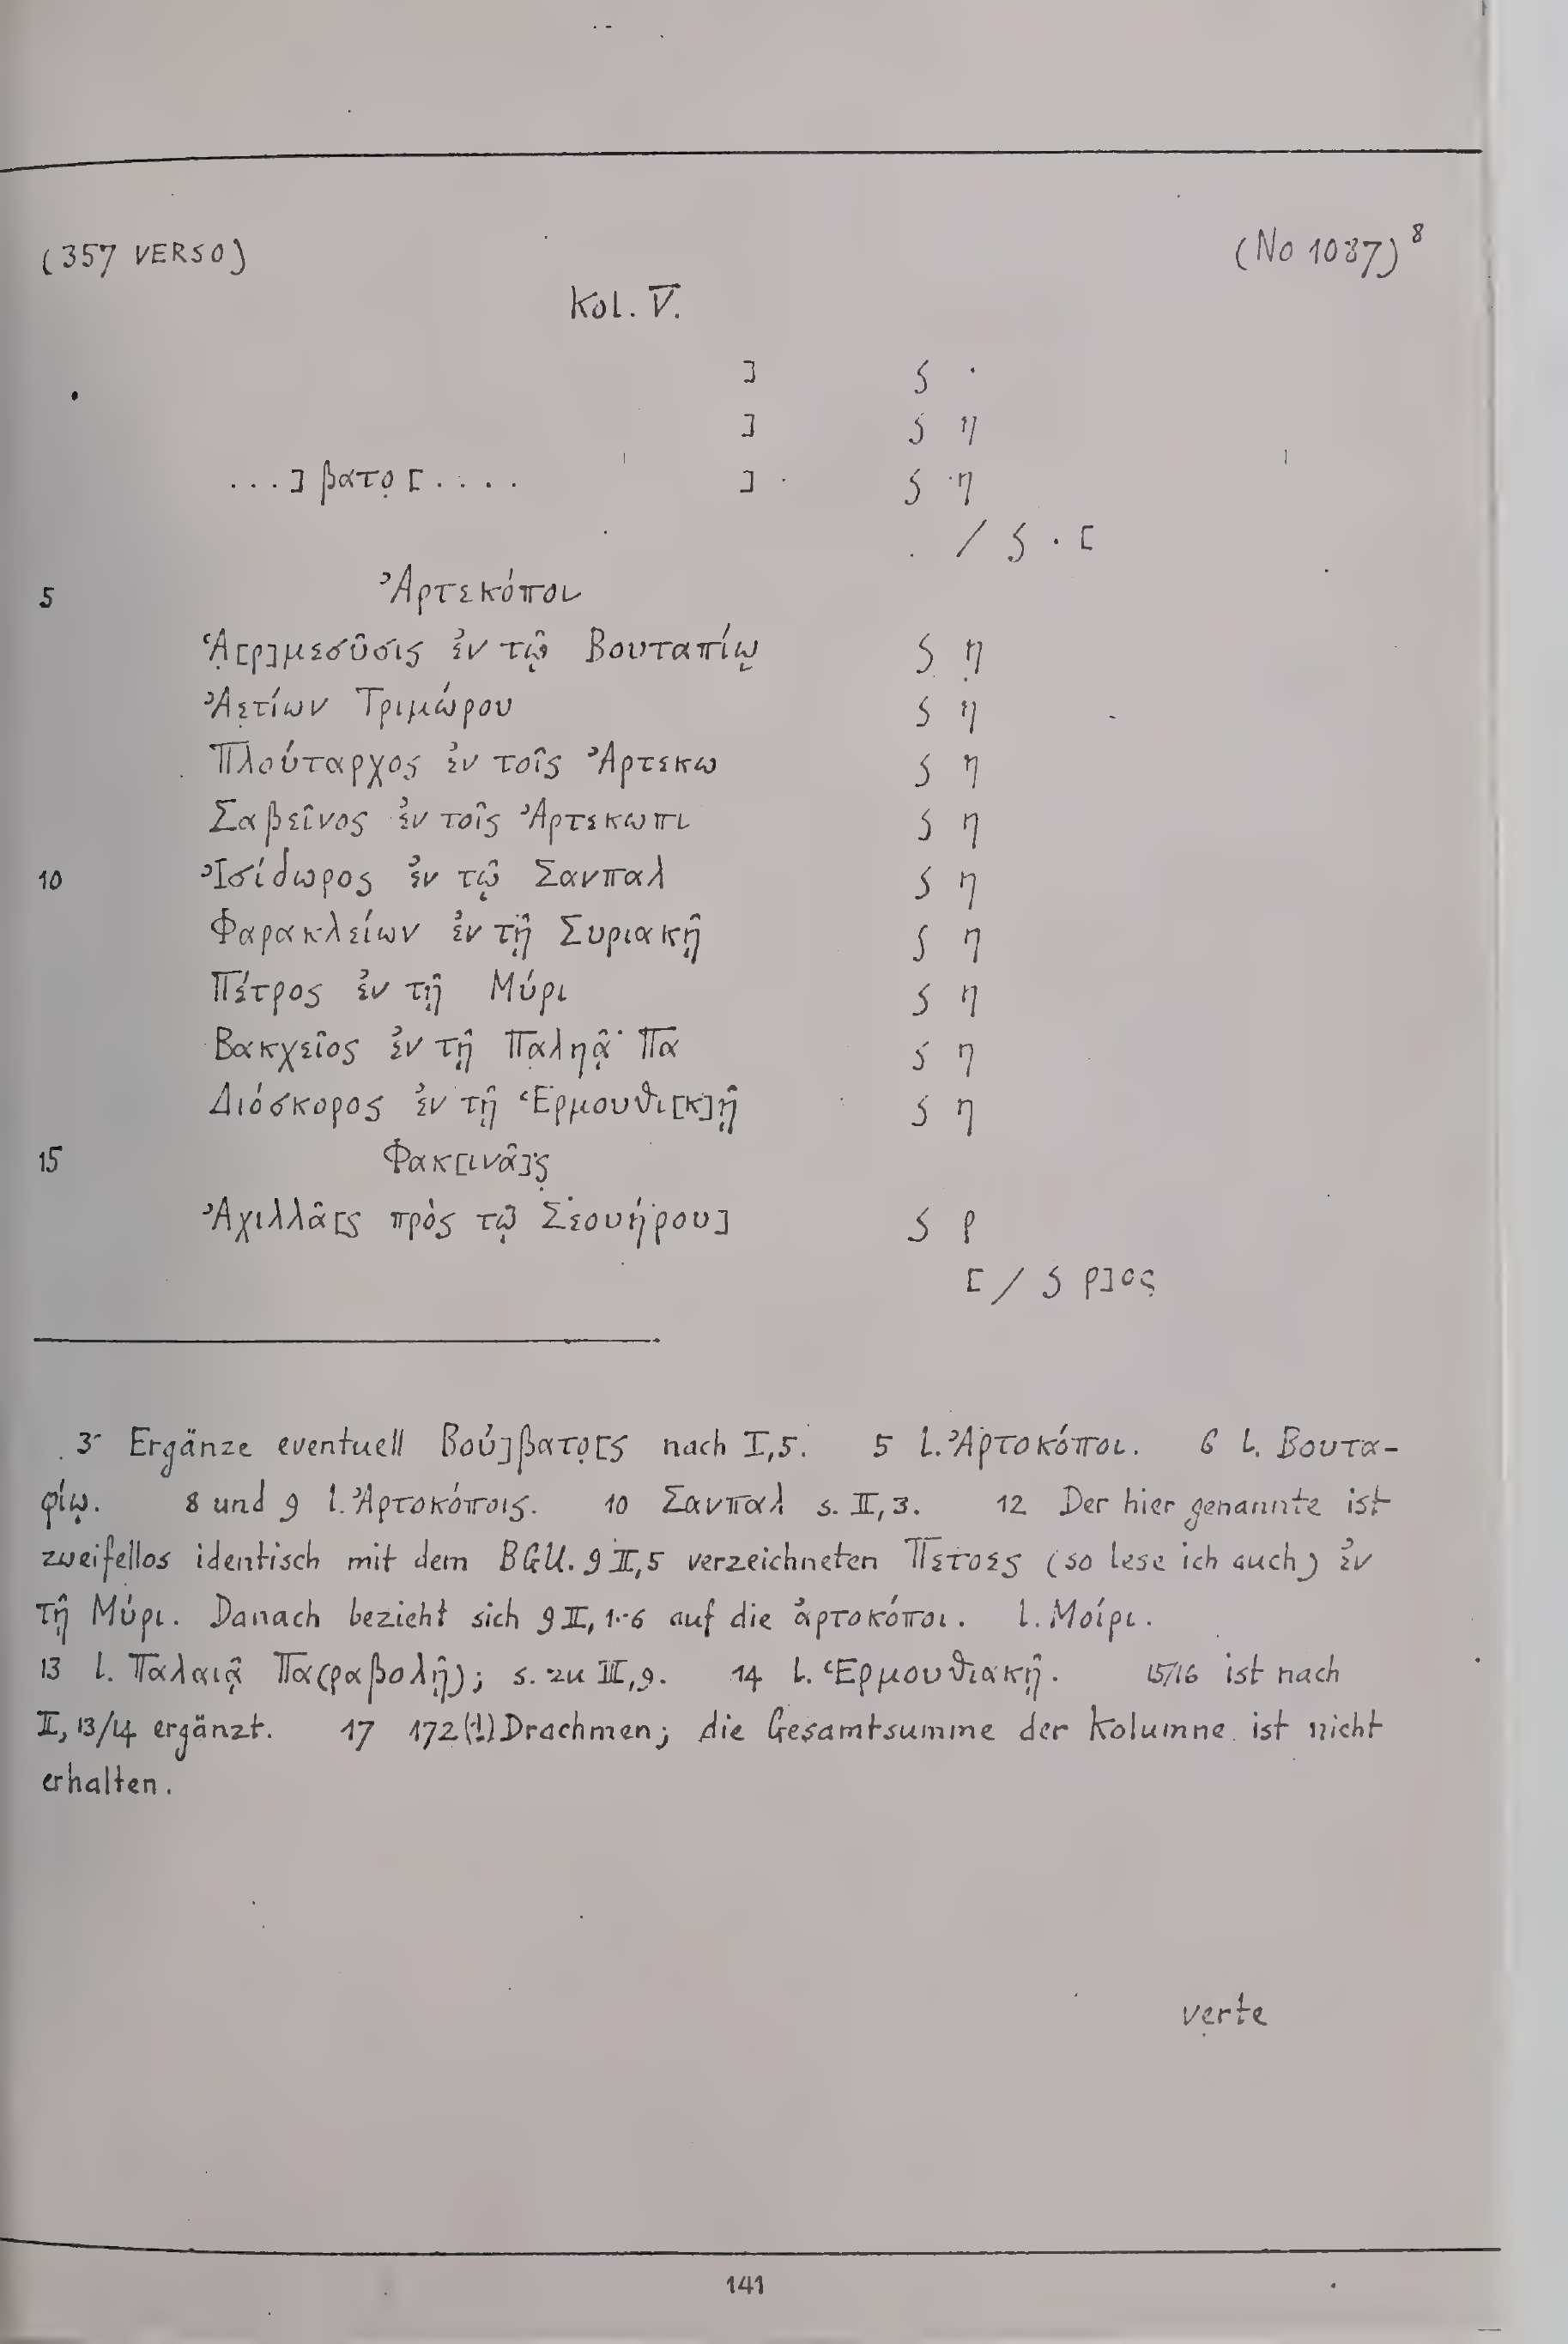 (357 VERSO) (No 1087)⁸
Kol. V.
] ʃ .
] ʃ η
...] βατο̣ [.... ] ʃ η
/ ʃ . [
5 Ἀρτεκόποι
Ἁ̣[ρ]μεσῦσις ἐν τῷ Βουταπίῳ ʃ η̣
Ἀε̣τίων Τριμώρου ʃ η
Πλούταρχος ἐν τοῖς Ἀρτεκω ʃ η
Σαβεῖνος ἐν τοῖς Ἀρτεκωπι ʃ η
10 Ἰσίδωρος ἐν τῷ Σανπαλ ʃ η
Φαρακλείων ἐν τῇ Συριακῇ ʃ η
Πέτρος ἐν τῇ Μύρι ʃ η
Βακχεῖος ἐν τῇ Παληᾷ Πα ʃ η
Διόσκορος ἐν τῇ Ἑρμουθι[κ]ῇ ʃ η
15 Φακ[ινᾶ]ς̣
Ἀχιλλᾶ[ς πρὸς τῷ Σεουήρου] ʃ ρ
[/ ʃ ρ]ος̣
3 Ergänze eventuell Βού]βατο̣[ς nach I,5. 5 l. Ἀρτοκόποι. 6 l. Βουτα-
φίῳ. 8 und 9 l. Ἀρτοκόποις. 10 Σανπαλ s. II,3. 12 Der hier genannte ist
zweifellos identisch mit dem BGU. 9 II,5 verzeichneten Πετοες (so lese ich auch) ἐν
τῇ Μύρι. Danach bezieht sich 9 II, 1-6 auf die ἀρτοκόποι. l. Μοίρι.
13 l. Παλαιᾷ Πα(ραβολῇ); s. zu III,9. 14 l. Ἑρμουθιακῇ. 15/16 ist nach
II, 13/14 ergänzt. 17 172(!) Drachmen; die Gesamtsumme der Kolumne ist nicht
erhalten.
verte
141